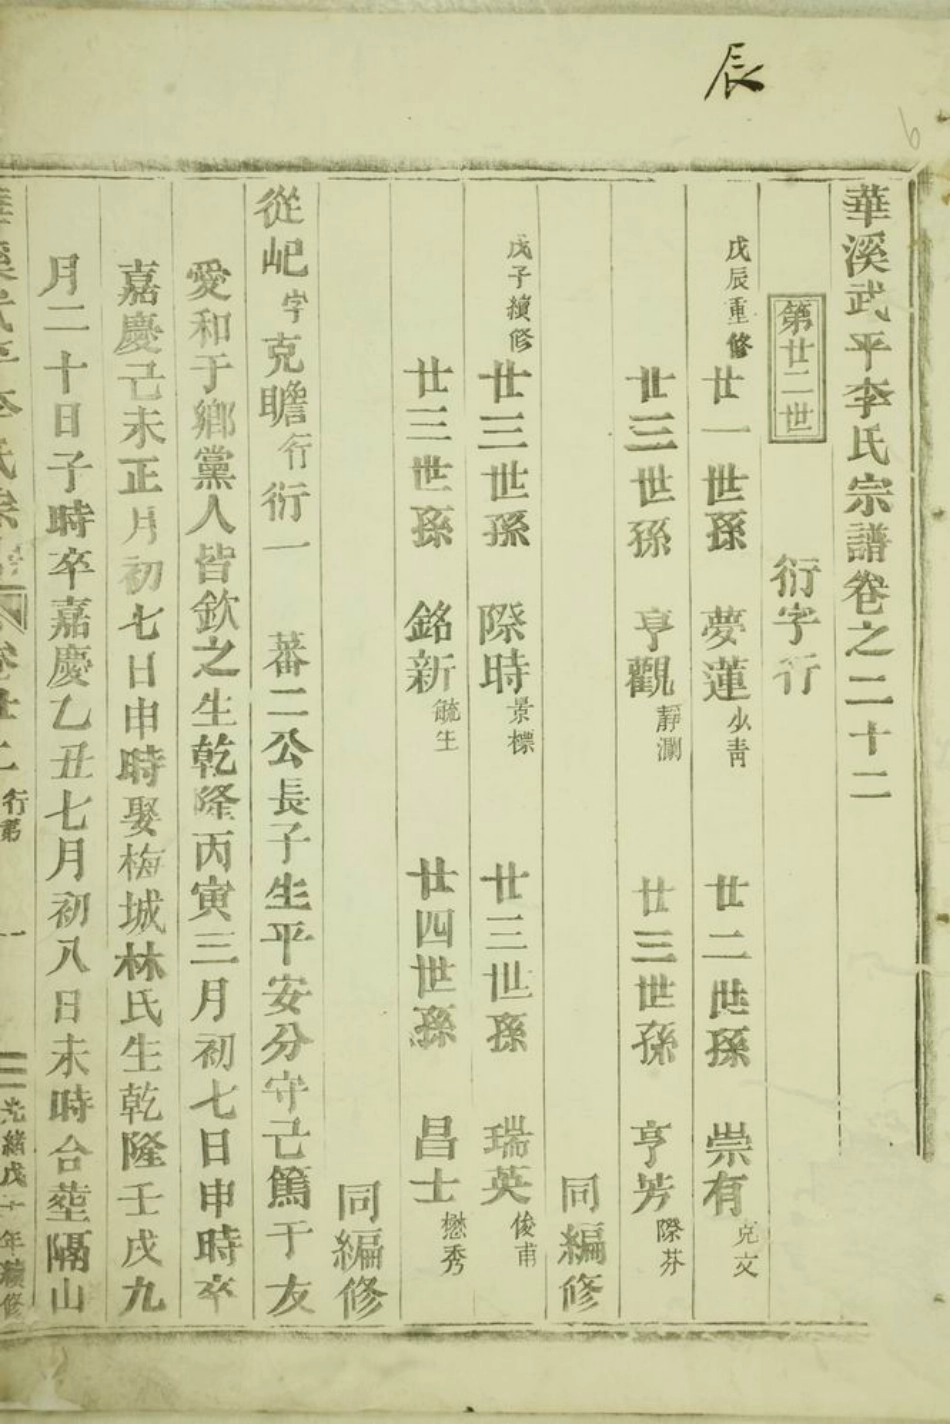 辰
6
華溪武平李氏宗譜卷之二十二
第廿二世
衍字行
戊辰重修 廿一世孫 夢蓮 少青 廿二世孫 崇有 克文
廿三世孫 亨觀 靜瀾 廿三世孫 亨芳 際芬
同編修
戊子續修 廿三世孫 際時 景標 廿三世孫 瑞英 俊甫
廿三世孫 銘新 毓生 廿四世孫 昌士 懋秀
同編修
從屺字克瞻行衍一 蕃二公長子生平安分守己篤于友
愛和于鄉黨人皆欽之生乾隆丙寅三月初七日申時卒
嘉慶己未正月初七日申時娶梅城林氏生乾隆壬戌九
月二十日子時卒嘉慶乙丑七月初八日未時合塟隔山
華溪武平李氏宗譜 卷廿二 行第 一 光緒戊子年續修